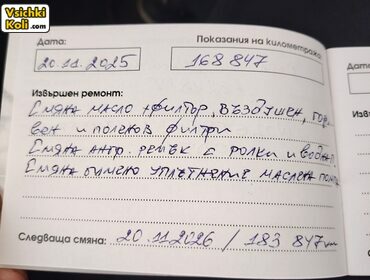 Vsichki
Koli.com
Дата:
Показания на километража
20.11.2025
168 847
Извършен ремонт:
Извъ
Смяна масло +филтър, въздушен, гор.
вен и поленов филтри
Смяна анг. ремък с ролки и водна
Смяна
уплътнение маслен
Следваща смяна: 20.11.2026 / 183 847 км
След